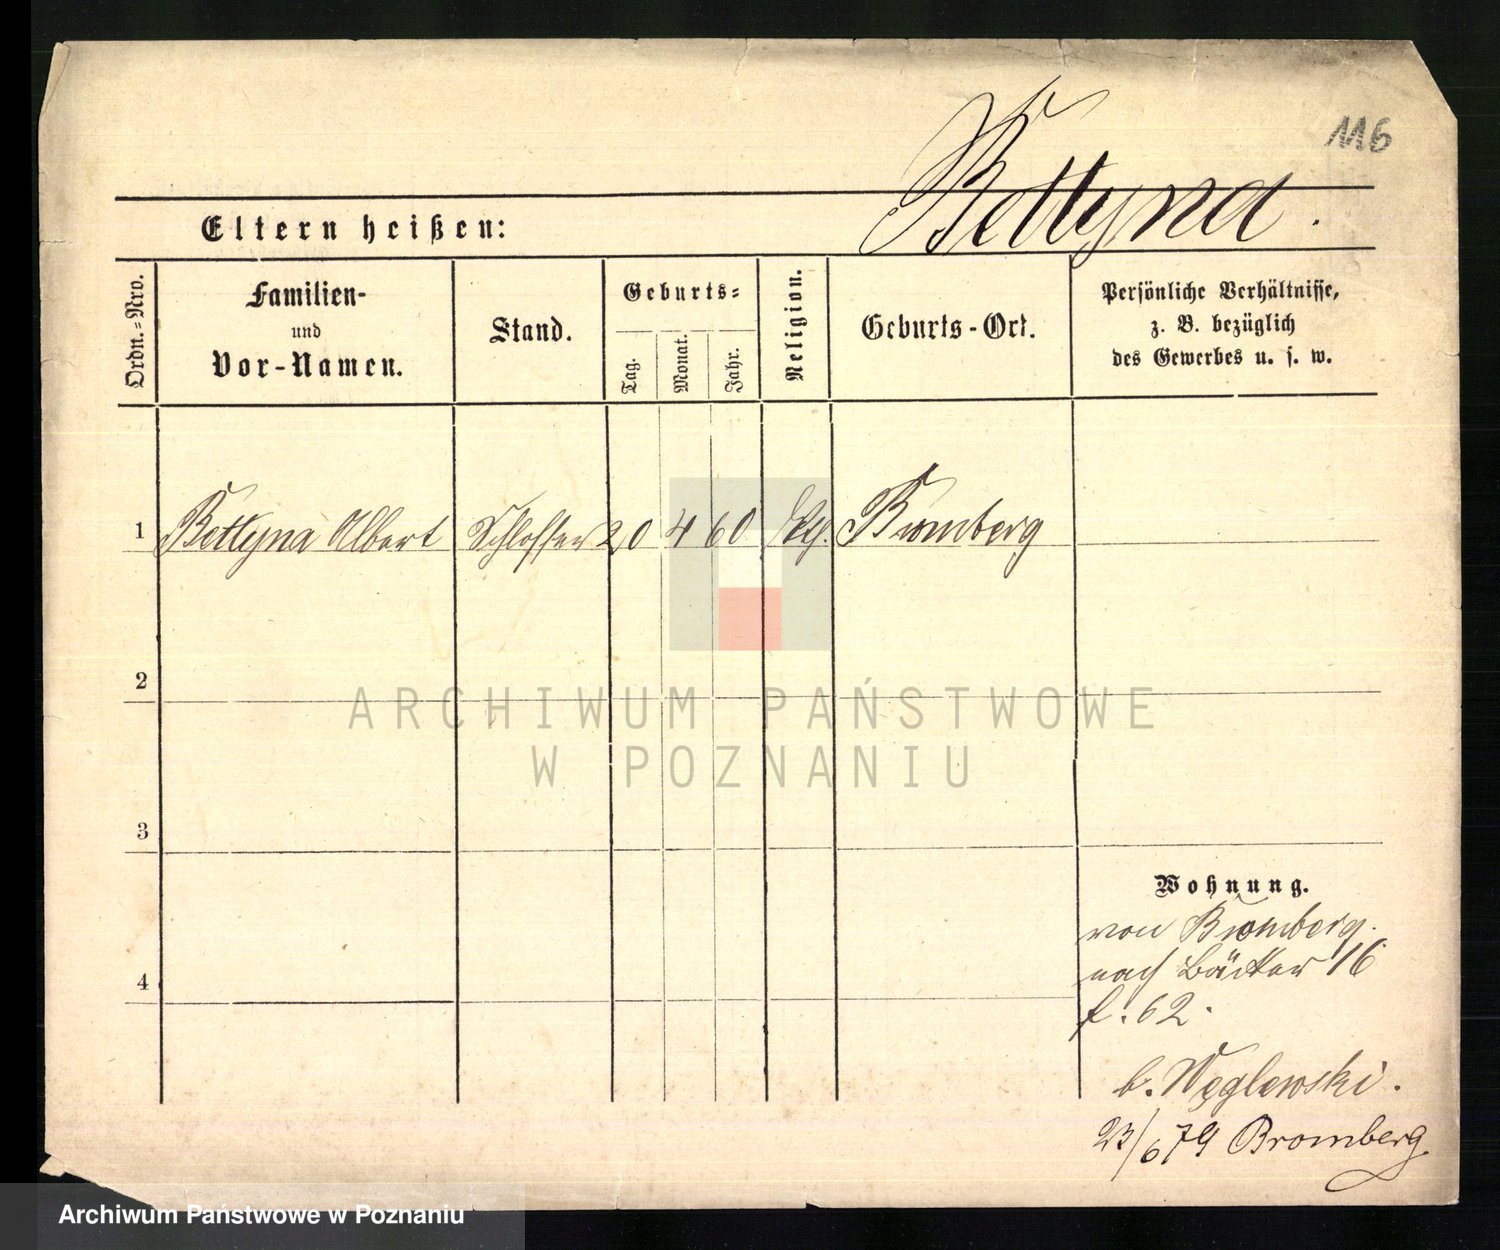 116
Bettyna.
Eltern heißen:
Ordn.=Nro.
Familien-
und
Vor-Namen.
Stand.
Geburts=
Tag.
Monat.
Jahr.
Religion.
Geburts-Ort.
Persönliche Verhältnisse,
z. B. bezüglich
des Gewerbes u. s. w.
1 Bettyna Albert Schlosser 20 4 60 Bromberg
2
3
4
Wohnung.
von Bromberg.
nach Bäcker 16
f. 62.
b. Węglewski.
23/6 79 Bromberg
ARCHIWUM PAŃSTWOWE
W POZNANIU
Archiwum Państwowe w Poznaniu